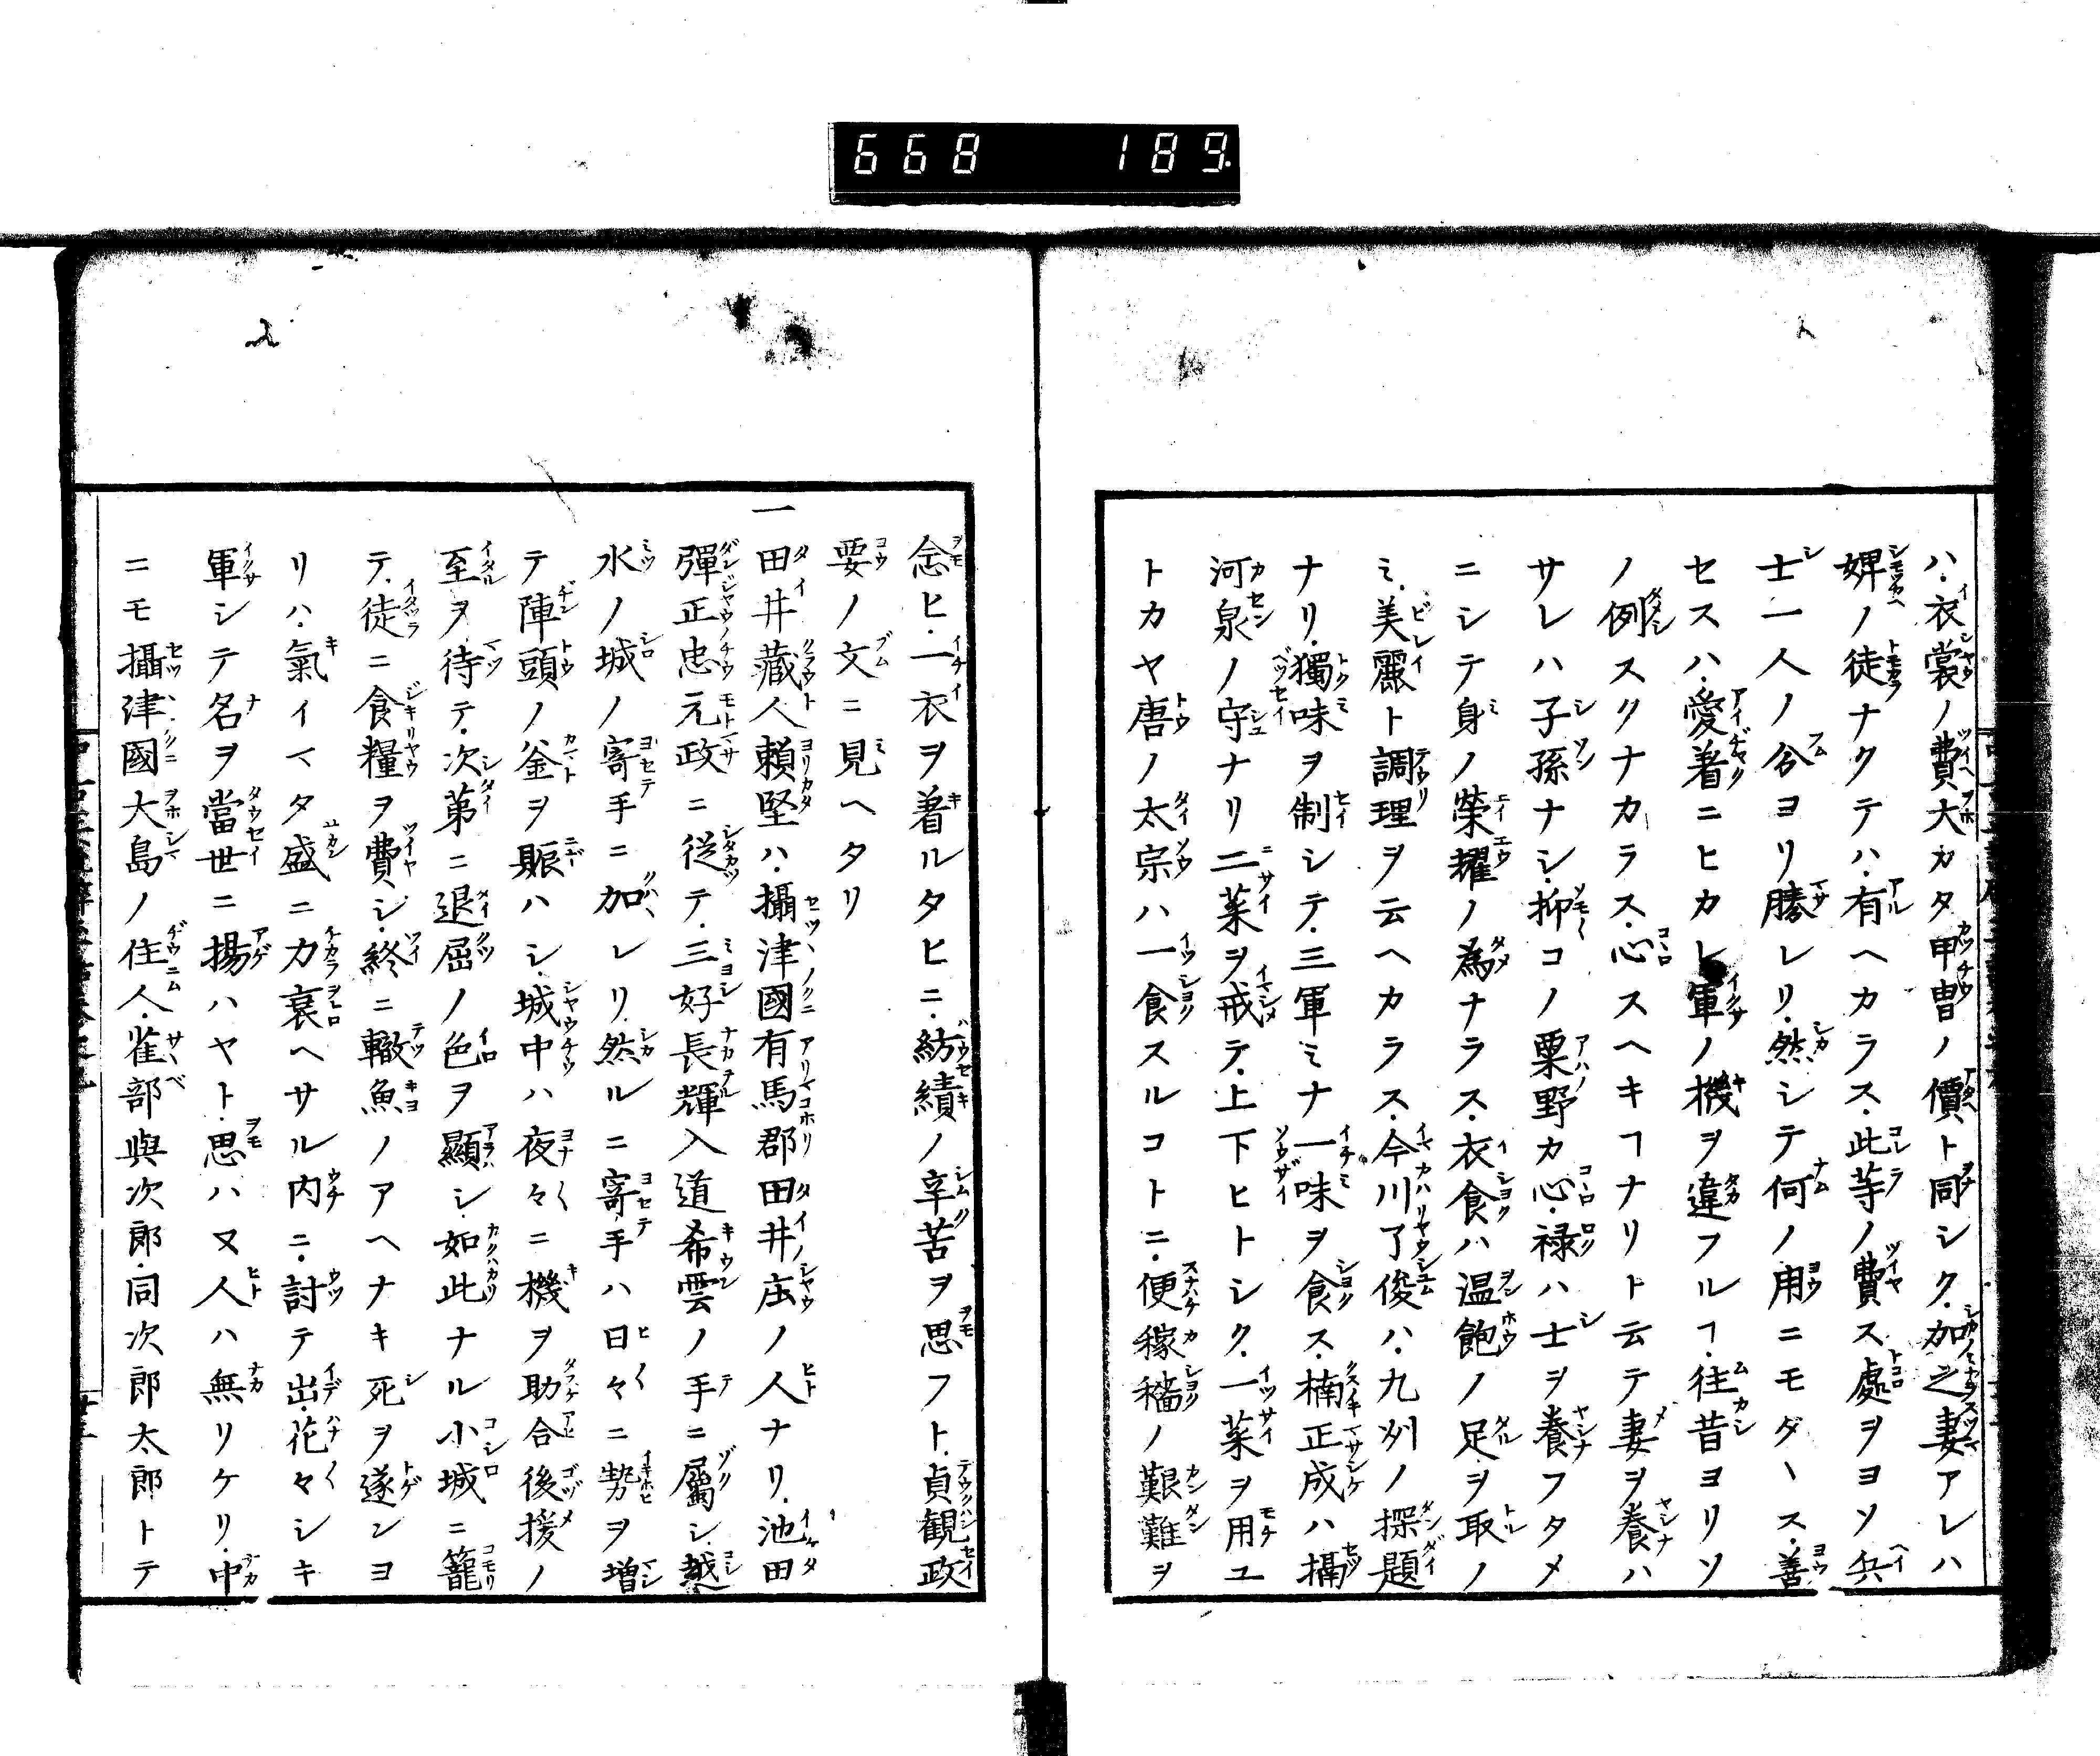 668 189
ハ衣裳ノ費大カタ甲冑ノ價ト同シク加之妻アレハ
婢ノ徒ナクテハ有ヘカラス此等ノ費ス處ヲヨソ兵
士一人ノ分ヨリ勝レリ然シテ何ノ用ニモダヽス善
セスハ愛着ニヒカレ軍ノ機ヲ違フルヿ往昔ヨリソ
ノ例スクナカラス心スヘキヿナリト云テ妻ヲ養ハ
サレハ子孫ナシ抑コノ粟野カ心禄ハ士ヲ養フタメ
ニシテ身ノ榮耀ノ為ナラス衣食ハ温飽ノ足ヲ取ノ
ミ美麗ト調理ヲ云ヘカラス今川了俊ハ九州ノ探題
ナリ獨味ヲ制シテ三軍ミナ一味ヲ食ス楠正成ハ攝
河泉ノ守ナリ二菜ヲ戒テ上下ヒトシク一菜ヲ用ユ
トカヤ唐ノ太宗ハ一食スルコトニ便稼穡ノ艱難ヲ
念ヒ一衣ヲ着ルタヒニ紡績ノ辛苦ヲ思フト貞観政
要ノ文ニ見ヘタリ
一田井藏人頼堅ハ攝津國有馬郡田井庄ノ人ナリ池田
彈正忠元政ニ從テ三好長輝入道希雲ノ手ニ屬シ越
水ノ城ノ寄手ニ加レリ然ルニ寄手ハ日々ニ勢ヲ増
テ陣頭ノ釜ヲ賑ハシ城中ハ夜々ニ機ヲ助合後援ノ
至ヲ待テ次第ニ退屈ノ色ヲ顯シ如此ナル小城ニ籠
テ徒ニ食糧ヲ費シ終ニ轍魚ノアヘナキ死ヲ遂ンヨ
リハ氣イマタ盛ニ力衰ヘサル内ニ討テ出花々シキ
軍シテ名ヲ當世ニ揚ハヤト思ハヌ人ハ無リケリ中
ニモ攝津國大島ノ住人雀部與次郎同次郎太郎トテ